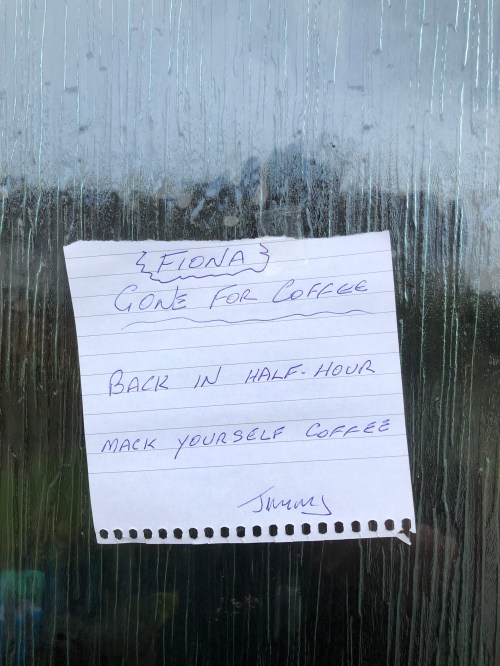 {FIONA}
GONE FOR COFFEE
BACK IN HALF-HOUR
MACK YOURSELF COFFEE
Jimmy